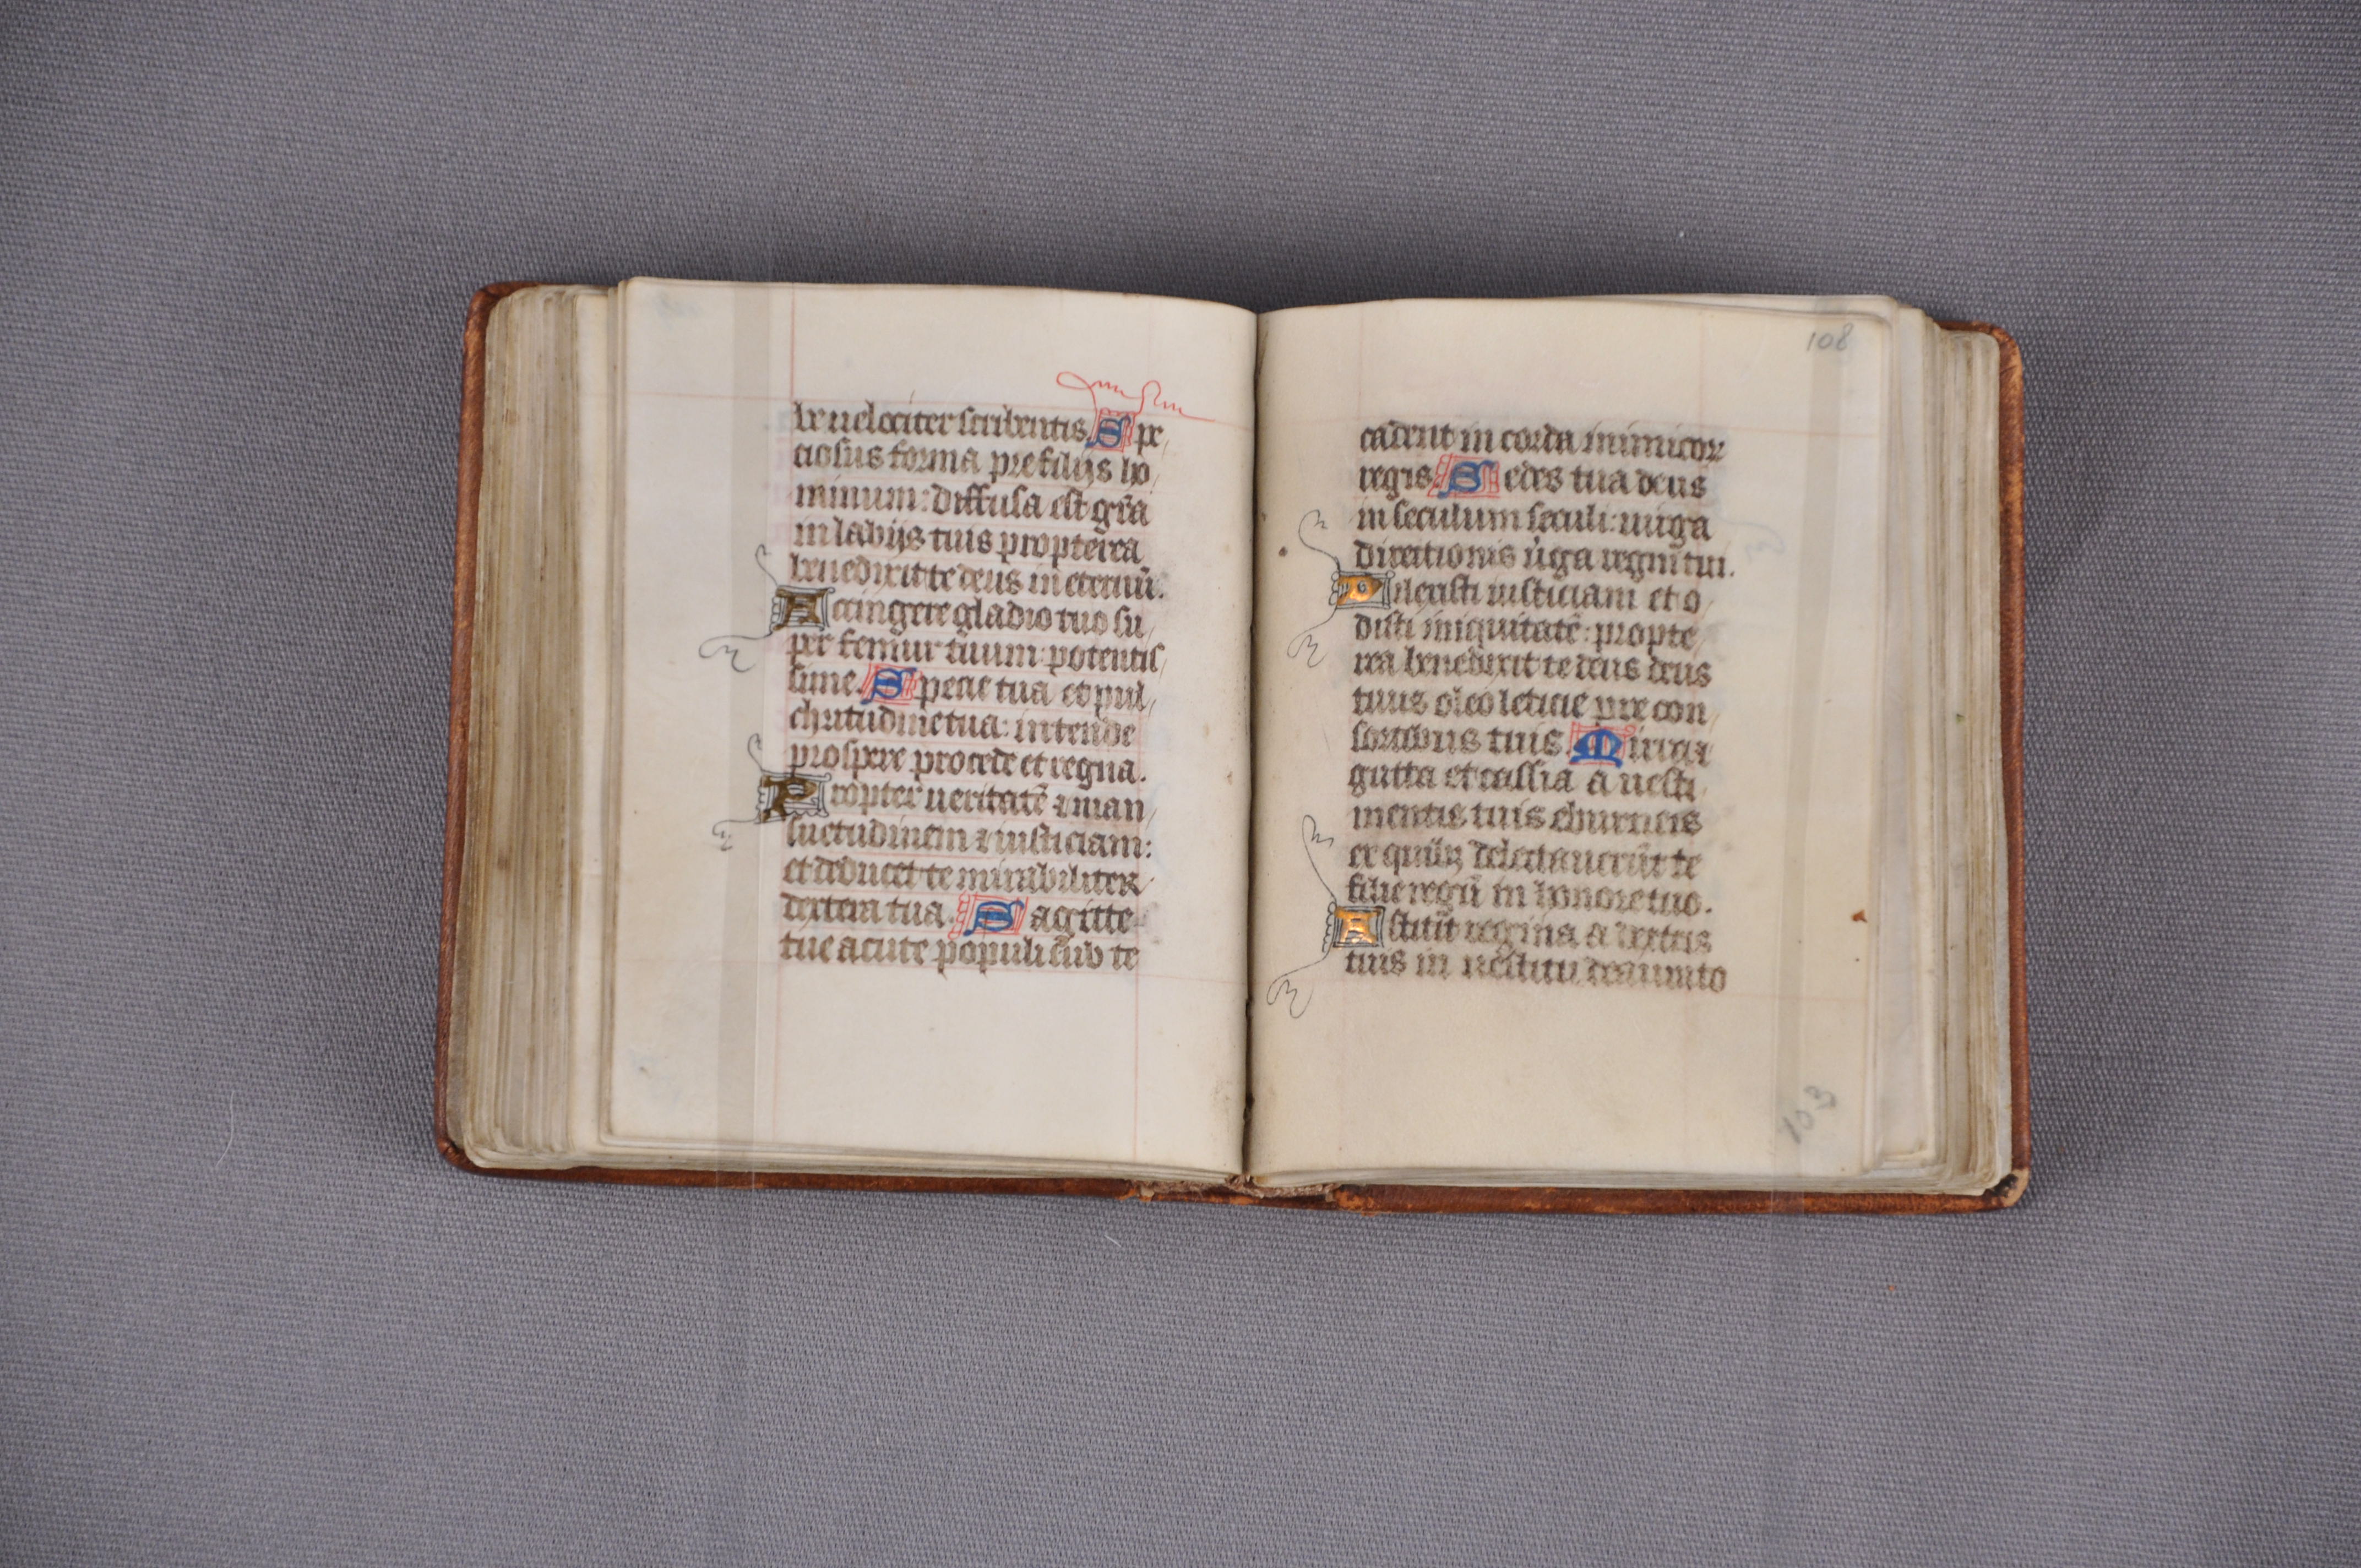 be uelociter scribentis. Spe
ciosus forma pre filijs ho
minum: diffusa est gr̃a
in labijs tuis propterea
benedixit te deus in eternũ.
Accingere gladio tuo su
per femur tuum: potentis
sime. Specie tua et pul
chritudine tua: intende
prospere procede et regna.
Propter ueritatẽ ⁊ man
suetudinem ⁊ iusticiam:
et deducet te mirabiliter
dextera tua. Sagitte
tue acute populi sub te
108
cadent in corda inimicoꝝ
regis. Sedes tua deus
in seculum seculi: uirga
directionis u̾ga regni tui.
Dilexisti iusticiam et o
disti iniquitatẽ: propte
rea benedixit te deus deus
tuus oleo leticie pre con
sortibus tuis. Mirra
gutta et cassia a uesti
mentis tuis eburneis
ex quibꝫ delectauerũt te
filie regũ in honore tuo.
Astitit regina a dextris
tuis in uestitu deaurato
103